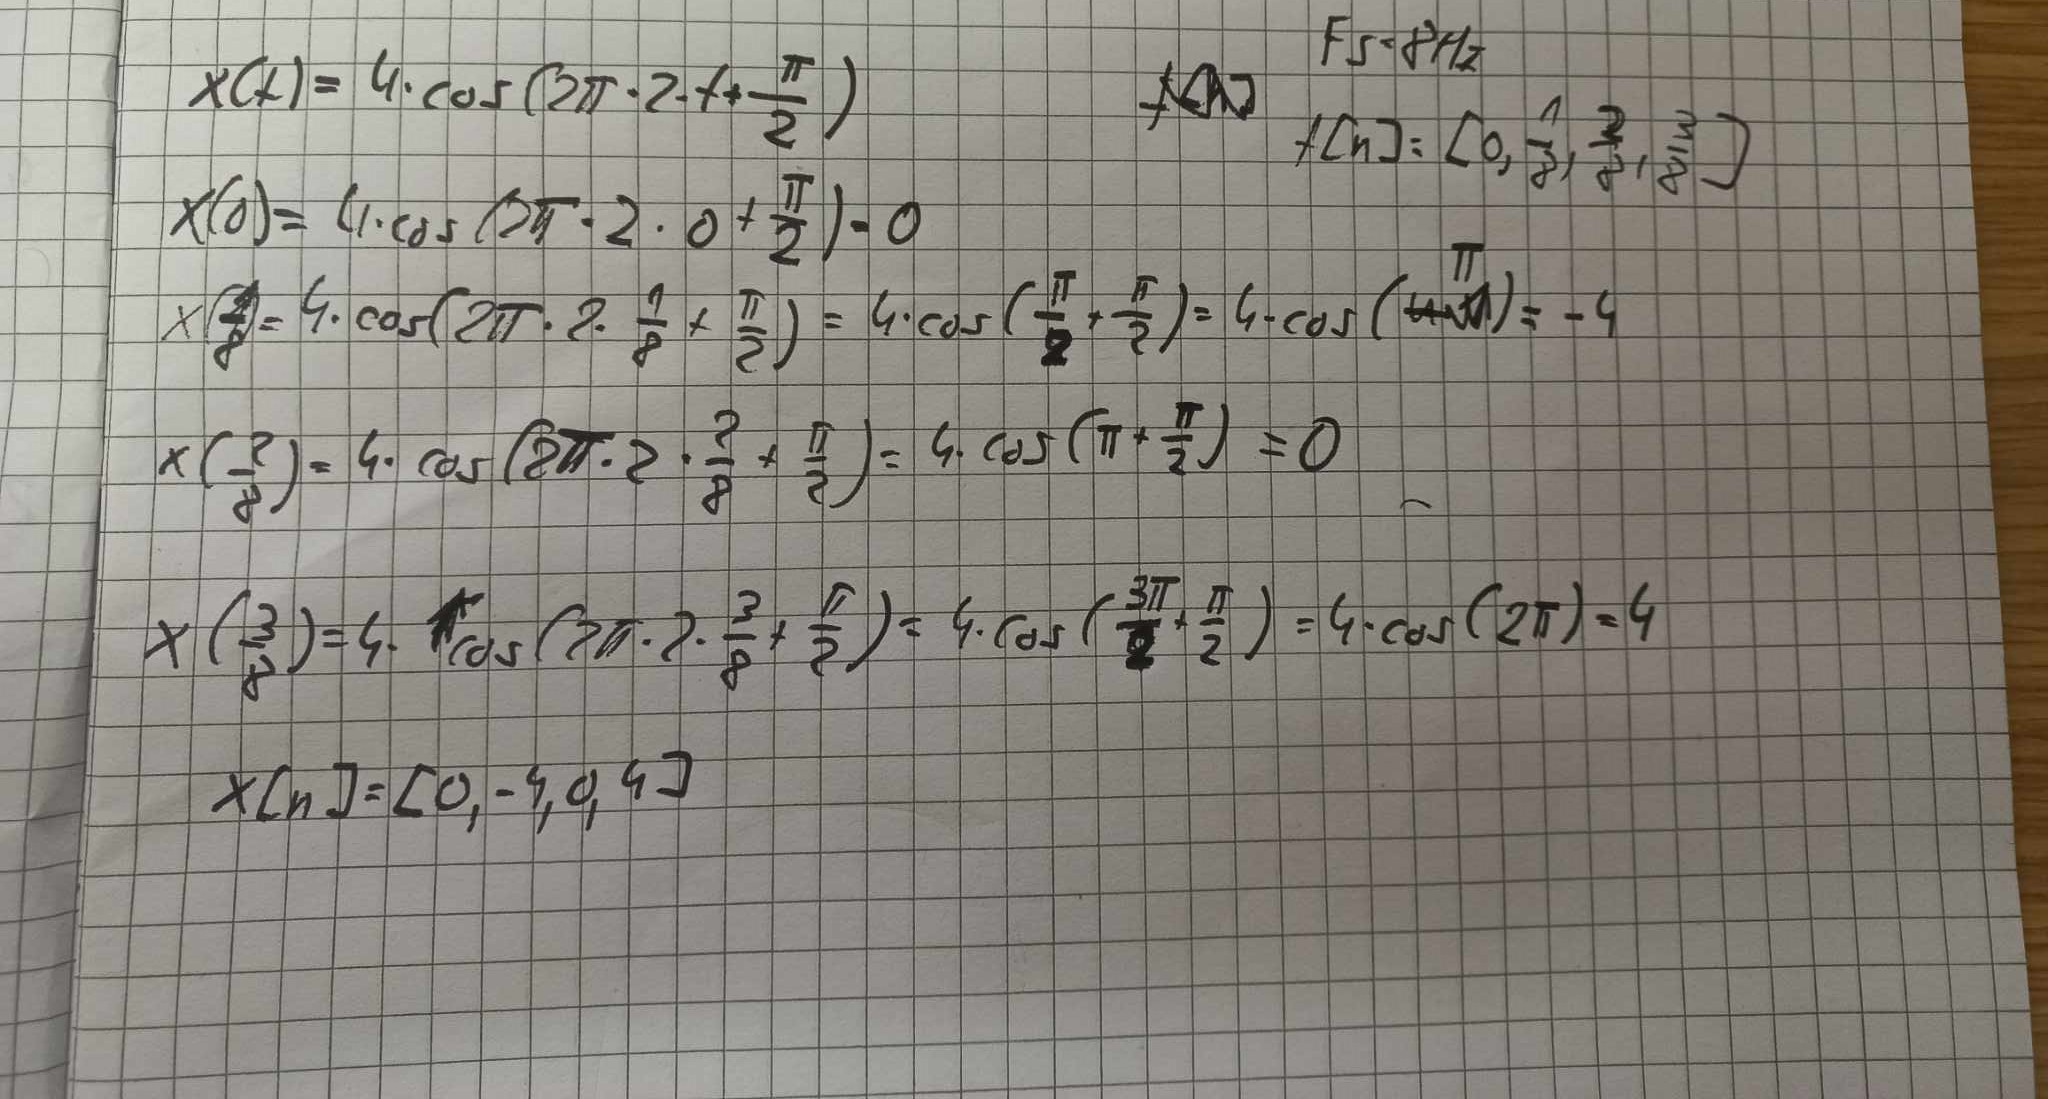 x(t) = 4·cos(2π·2·t+π/2)
Fs=8Hz
t[n]=[0, 1/8, 2/8, 3/8]
x(0)= 4·cos(2π·2·0+π/2)=0
x(1/8)= 4·cos(2π·2·1/8+π/2) = 4·cos(π/2+π/2)= 4·cos(π)= -4
x(2/8)= 4·cos(2π·2·2/8+π/2)= 4·cos(π+π/2) =0
x(3/8)=4·cos(2π·2·3/8+π/2)= 4·cos(3π/2+π/2) =4·cos(2π)=4
x[n]=[0,-4,0,4]